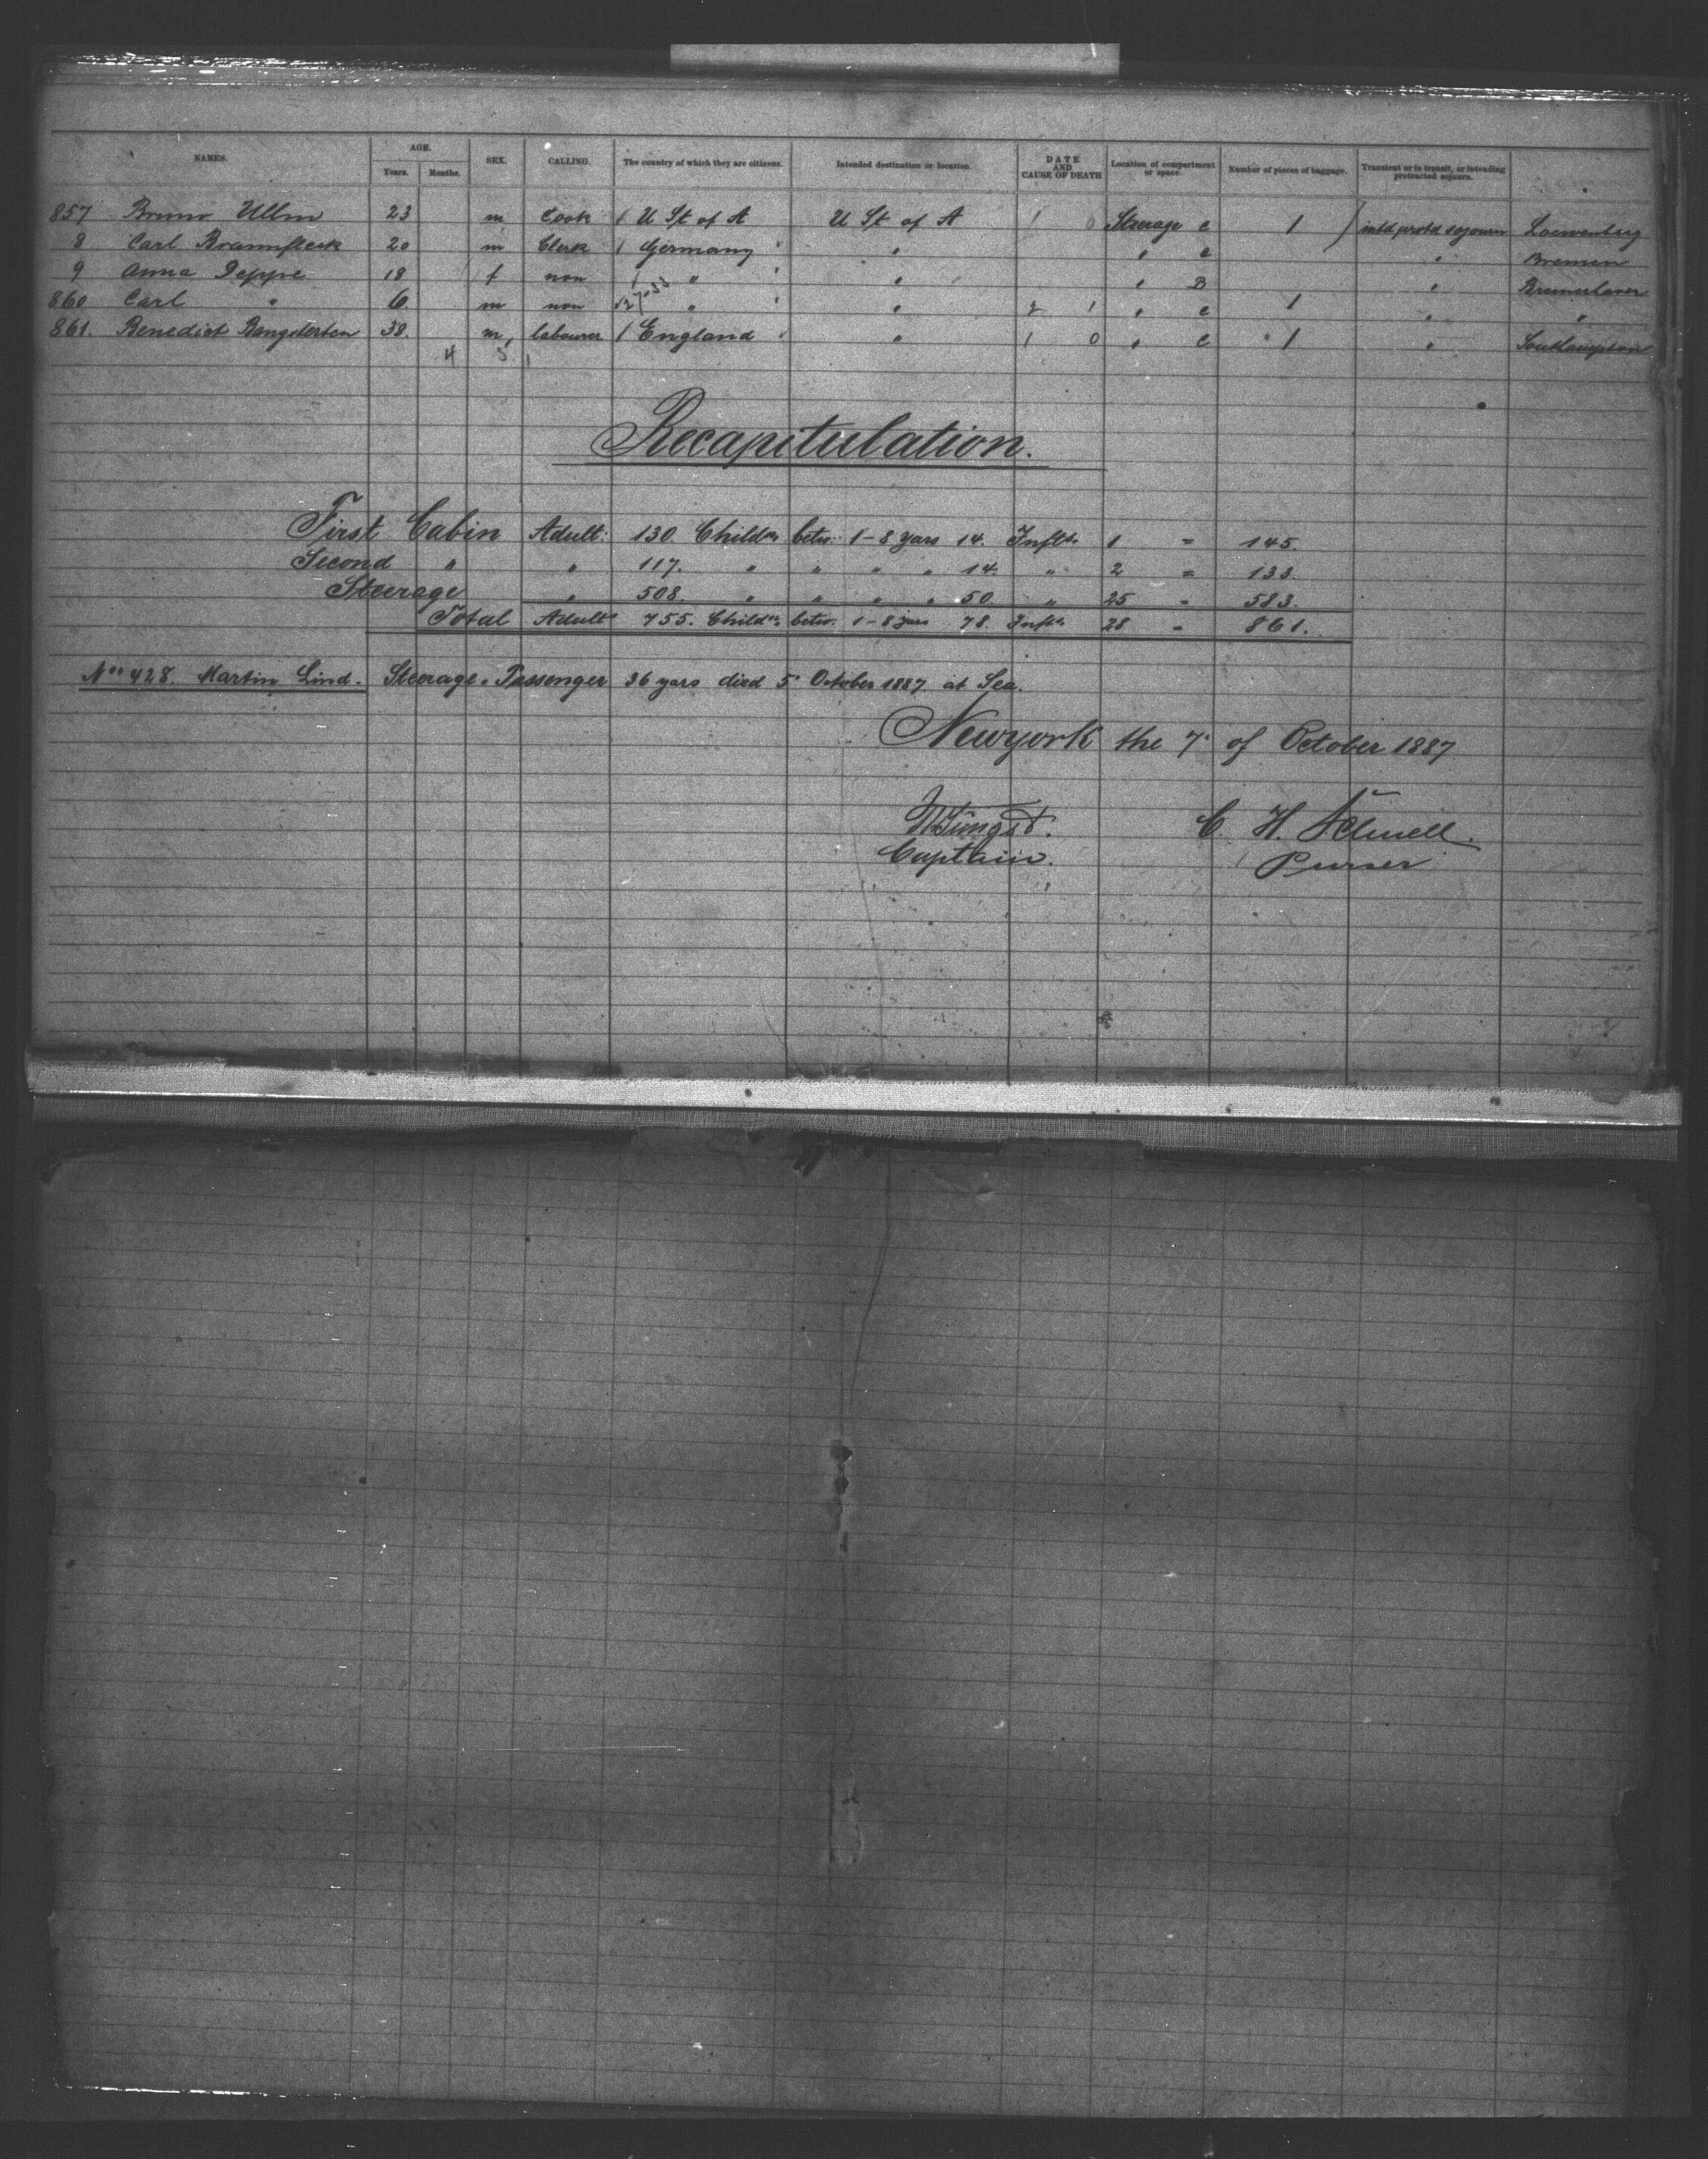 NAMES. AGE. Years. Months. SEX. CALLING. The country of which they are citizens. Intended destination or location. DATE AND CAUSE OF DEATH Location of compartment or space. Number of pieces of baggage. Transient or in transit, or intending protracted sojourn.
857 Bruno Ullm 23 m Cook 1 U St of A U St of A 1 0 Steerage C 1 intd protd sojourn Loewenberg
8 Carl Braunfleck 20 m Clerk 1 Germany " " C " Bremen
9 Anna Deppe 18 f non 1 " " " B " Bremerhaven
860 Carl " 6. m non " " 2 1 " C 1 " "
861. Benedict 38. m, labourer 1 England " 1 0 " C 1 " Southampton
4 5 1
Recapitulation.
First Cabin Adult: 130. Childrn betw: 1-8 yars 14. Infts. 1 = 145.
Second " " 117. " " " " 14. " 2 = 133.
Steerage " 508. " " " " 50. " 25 = 583.
Total Adults 755. Childrn betw. 1-8 yars 78. Infts. 28 = 861.
Nro 428. Martin Lind. Steerage-Passenger 36 yars died 5. October 1887 at Sea.
Newyork the 7. of October 1887
Jüngst. C. H. Schnell.
Captain. Purser